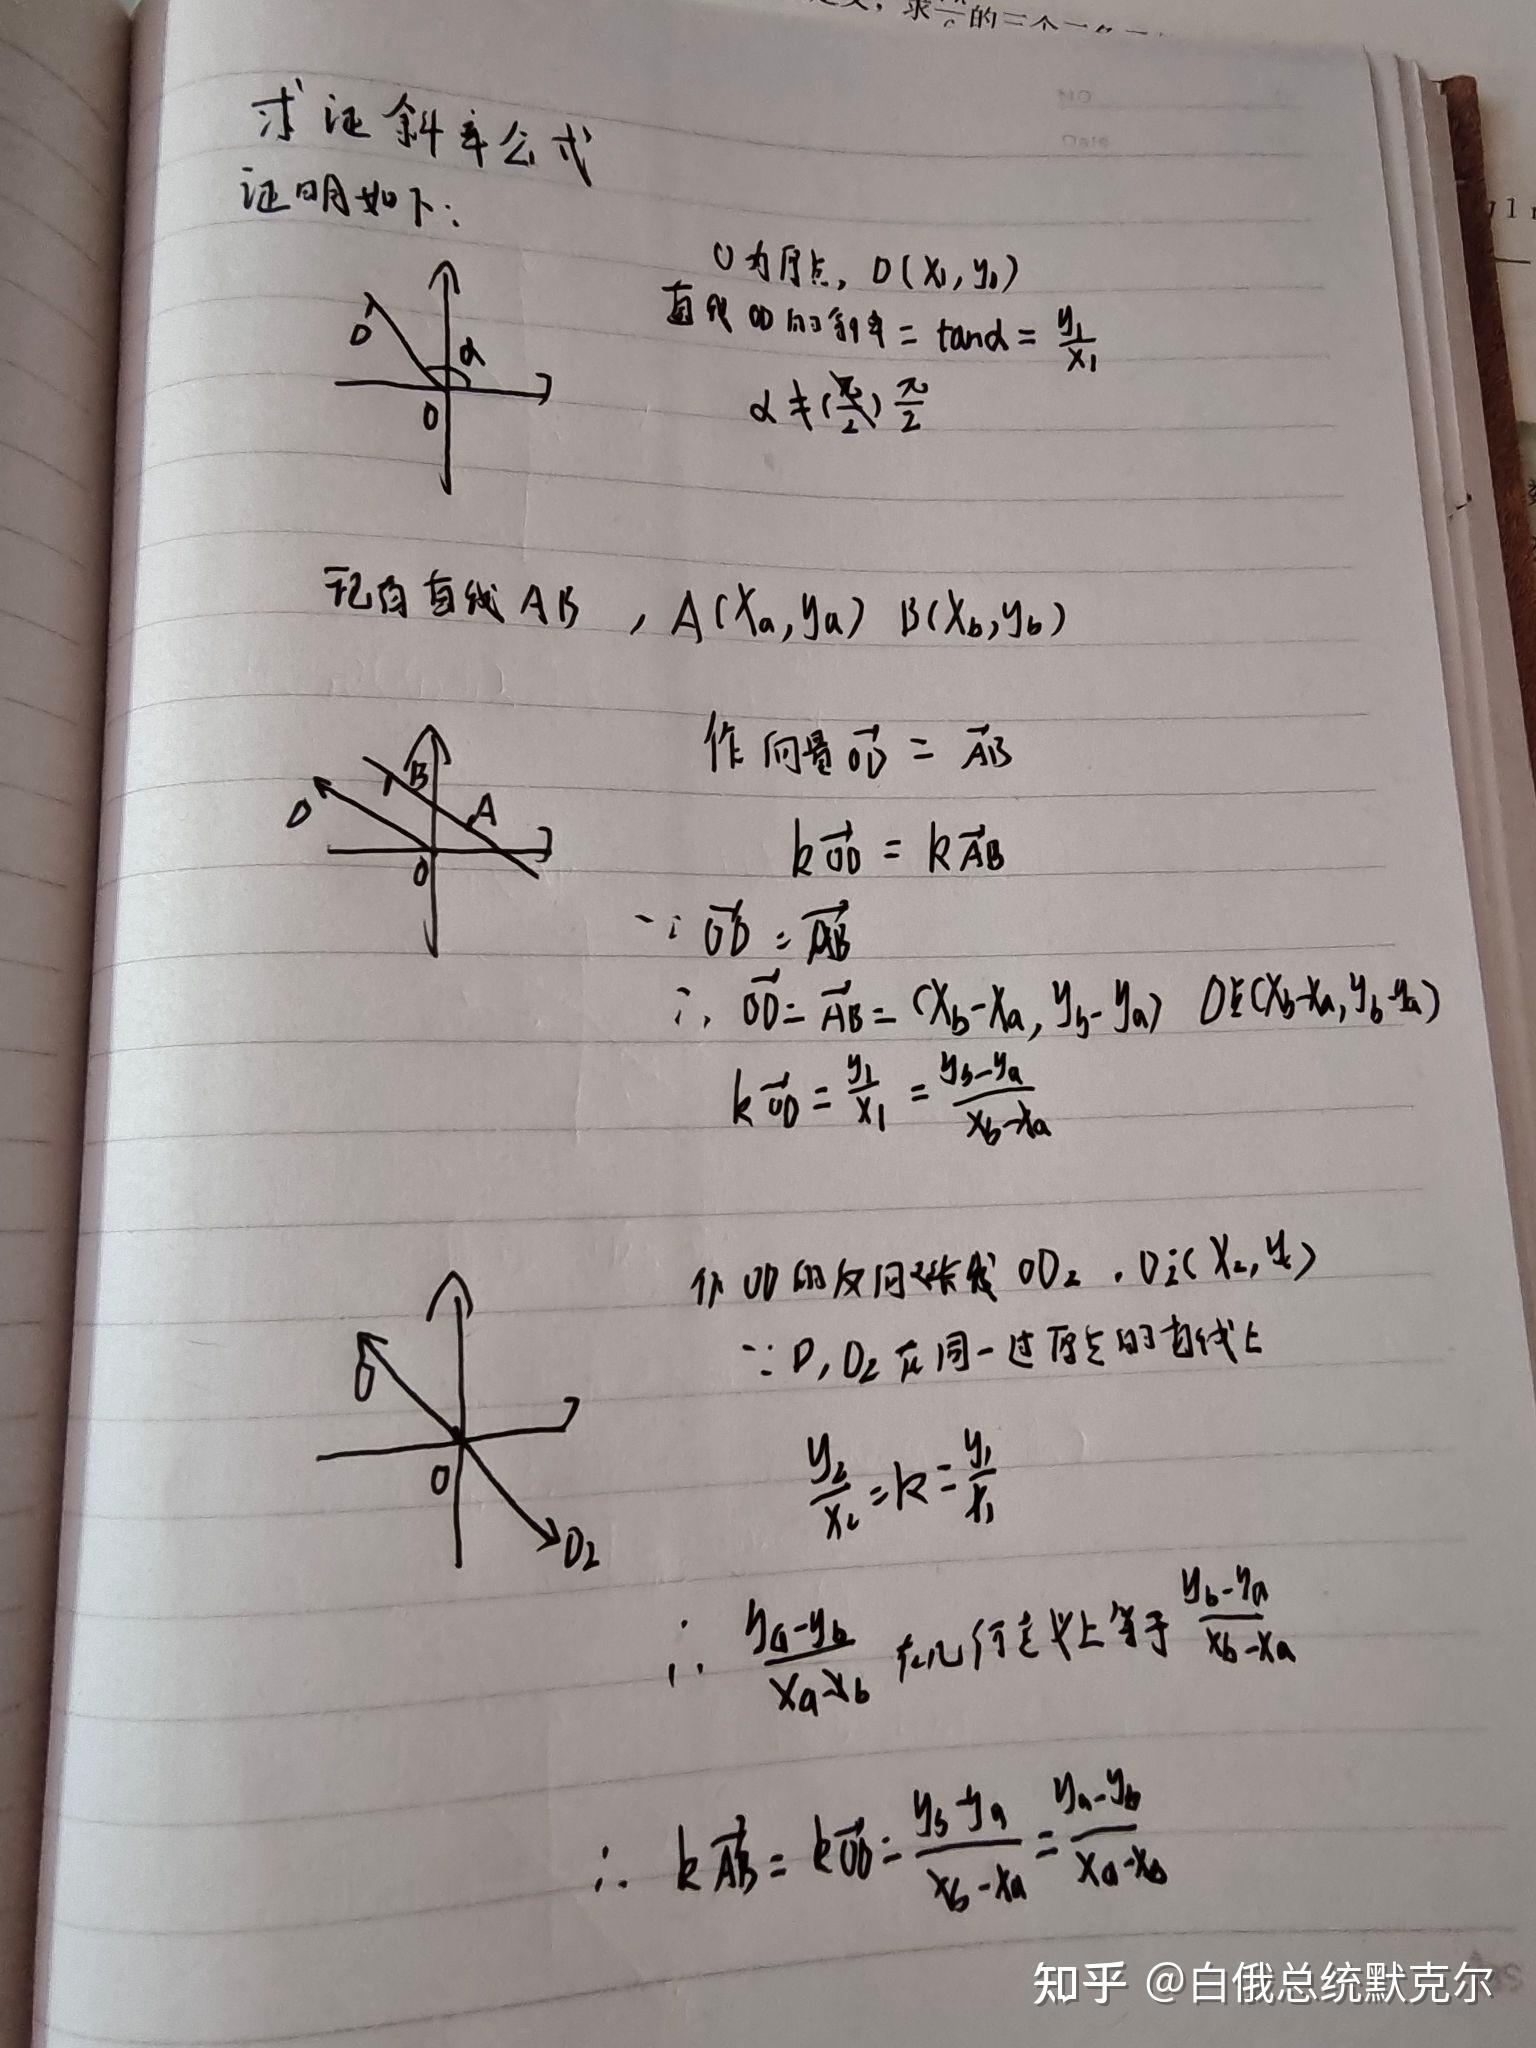 求 的三个
求证斜率公式
证明如下：
O为原点，D(x₁,y₁)
直线OD的斜率 = tanα = y₁/x₁
α≠(π/2) π/2
D
α
O
现有直线AB ，A(xₐ,yₐ) B(x_b,y_b)
作向量OD⃗ = AB⃗
B
A
D
O
kOD⃗ = kAB⃗
∵ OD⃗ = AB⃗
∴ OD⃗ = AB⃗ = (x_b-xₐ, y_b-yₐ) D点(x_b-xₐ, y_b-yₐ)
kOD⃗ = y₁/x₁ = (y_b-yₐ)/(x_b-xₐ)
作OD的反向延长线OD₂，D₂(x₂,y₂)
∵D,D₂在同一过原点的直线上
D
O
D₂
y₂/x₂ = k = y₁/x₁
∴ (yₐ-y_b)/(xₐ-x_b) 在几何意义上等于 (y_b-yₐ)/(x_b-xₐ)
∴ kAB⃗ = kOD⃗ = (y_b-yₐ)/(x_b-xₐ) = (yₐ-y_b)/(xₐ-x_b)
知乎 @白俄总统默克尔